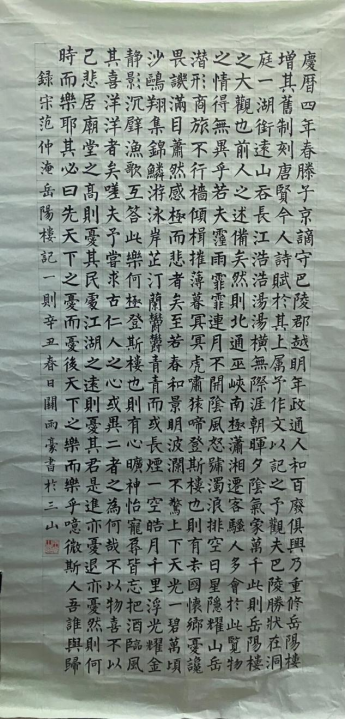 慶曆四年春滕子京謫守巴陵郡越明年政通人和百廢俱興乃重修岳陽樓
增其舊制刻唐賢今人詩賦於其上属予作文以記之予觀夫巴陵勝狀在洞
庭一湖銜遠山吞長江浩浩湯湯橫無際涯朝暉夕陰氣象萬千此則岳陽樓
之大觀也前人之述備矣然則北通巫峽南極瀟湘遷客騷人多會於此覽物
之情得無異乎若夫霪雨霏霏連月不開陰風怒號濁浪排空日星隱耀山岳
潛形商旅不行檣傾楫摧薄暮冥冥虎嘯猿啼登斯樓也則有去國懷鄉憂讒
畏譏滿目蕭然感極而悲者矣至若春和景明波瀾不驚上下天光一碧萬頃
沙鷗翔集錦鱗游泳岸芷汀蘭鬱鬱青青而或長煙一空皓月千里浮光耀金
靜影沉璧漁歌互答此樂何極登斯樓也則有心曠神怡寵辱皆忘把酒臨風
其喜洋洋者矣嗟夫予嘗求古仁人之心或異二者之為何哉不以物喜不以
己悲居廟堂之高則憂其民處江湖之遠則憂其君是進亦憂退亦憂然則何
時而樂耶其必曰先天下之憂而憂後天下之樂而樂乎噫微斯人吾誰與歸
錄宋范仲淹岳陽樓記一則辛丑春日關雨豪書於三山